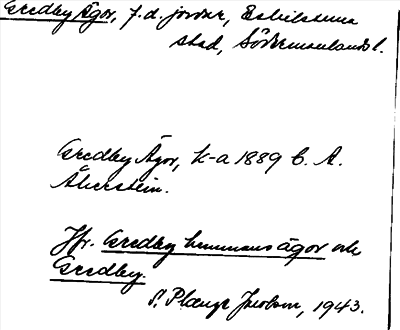 Gredby Ägor, f.d. jordar, Eskilstuna
stad, Södermanlands l.
Gredby Ägor, k-a 1889 C. A.
Åkerstein.
Jfr. Gredby hemmans ägor och
Gredby.
S. Plaenge Jacobson, 1943.